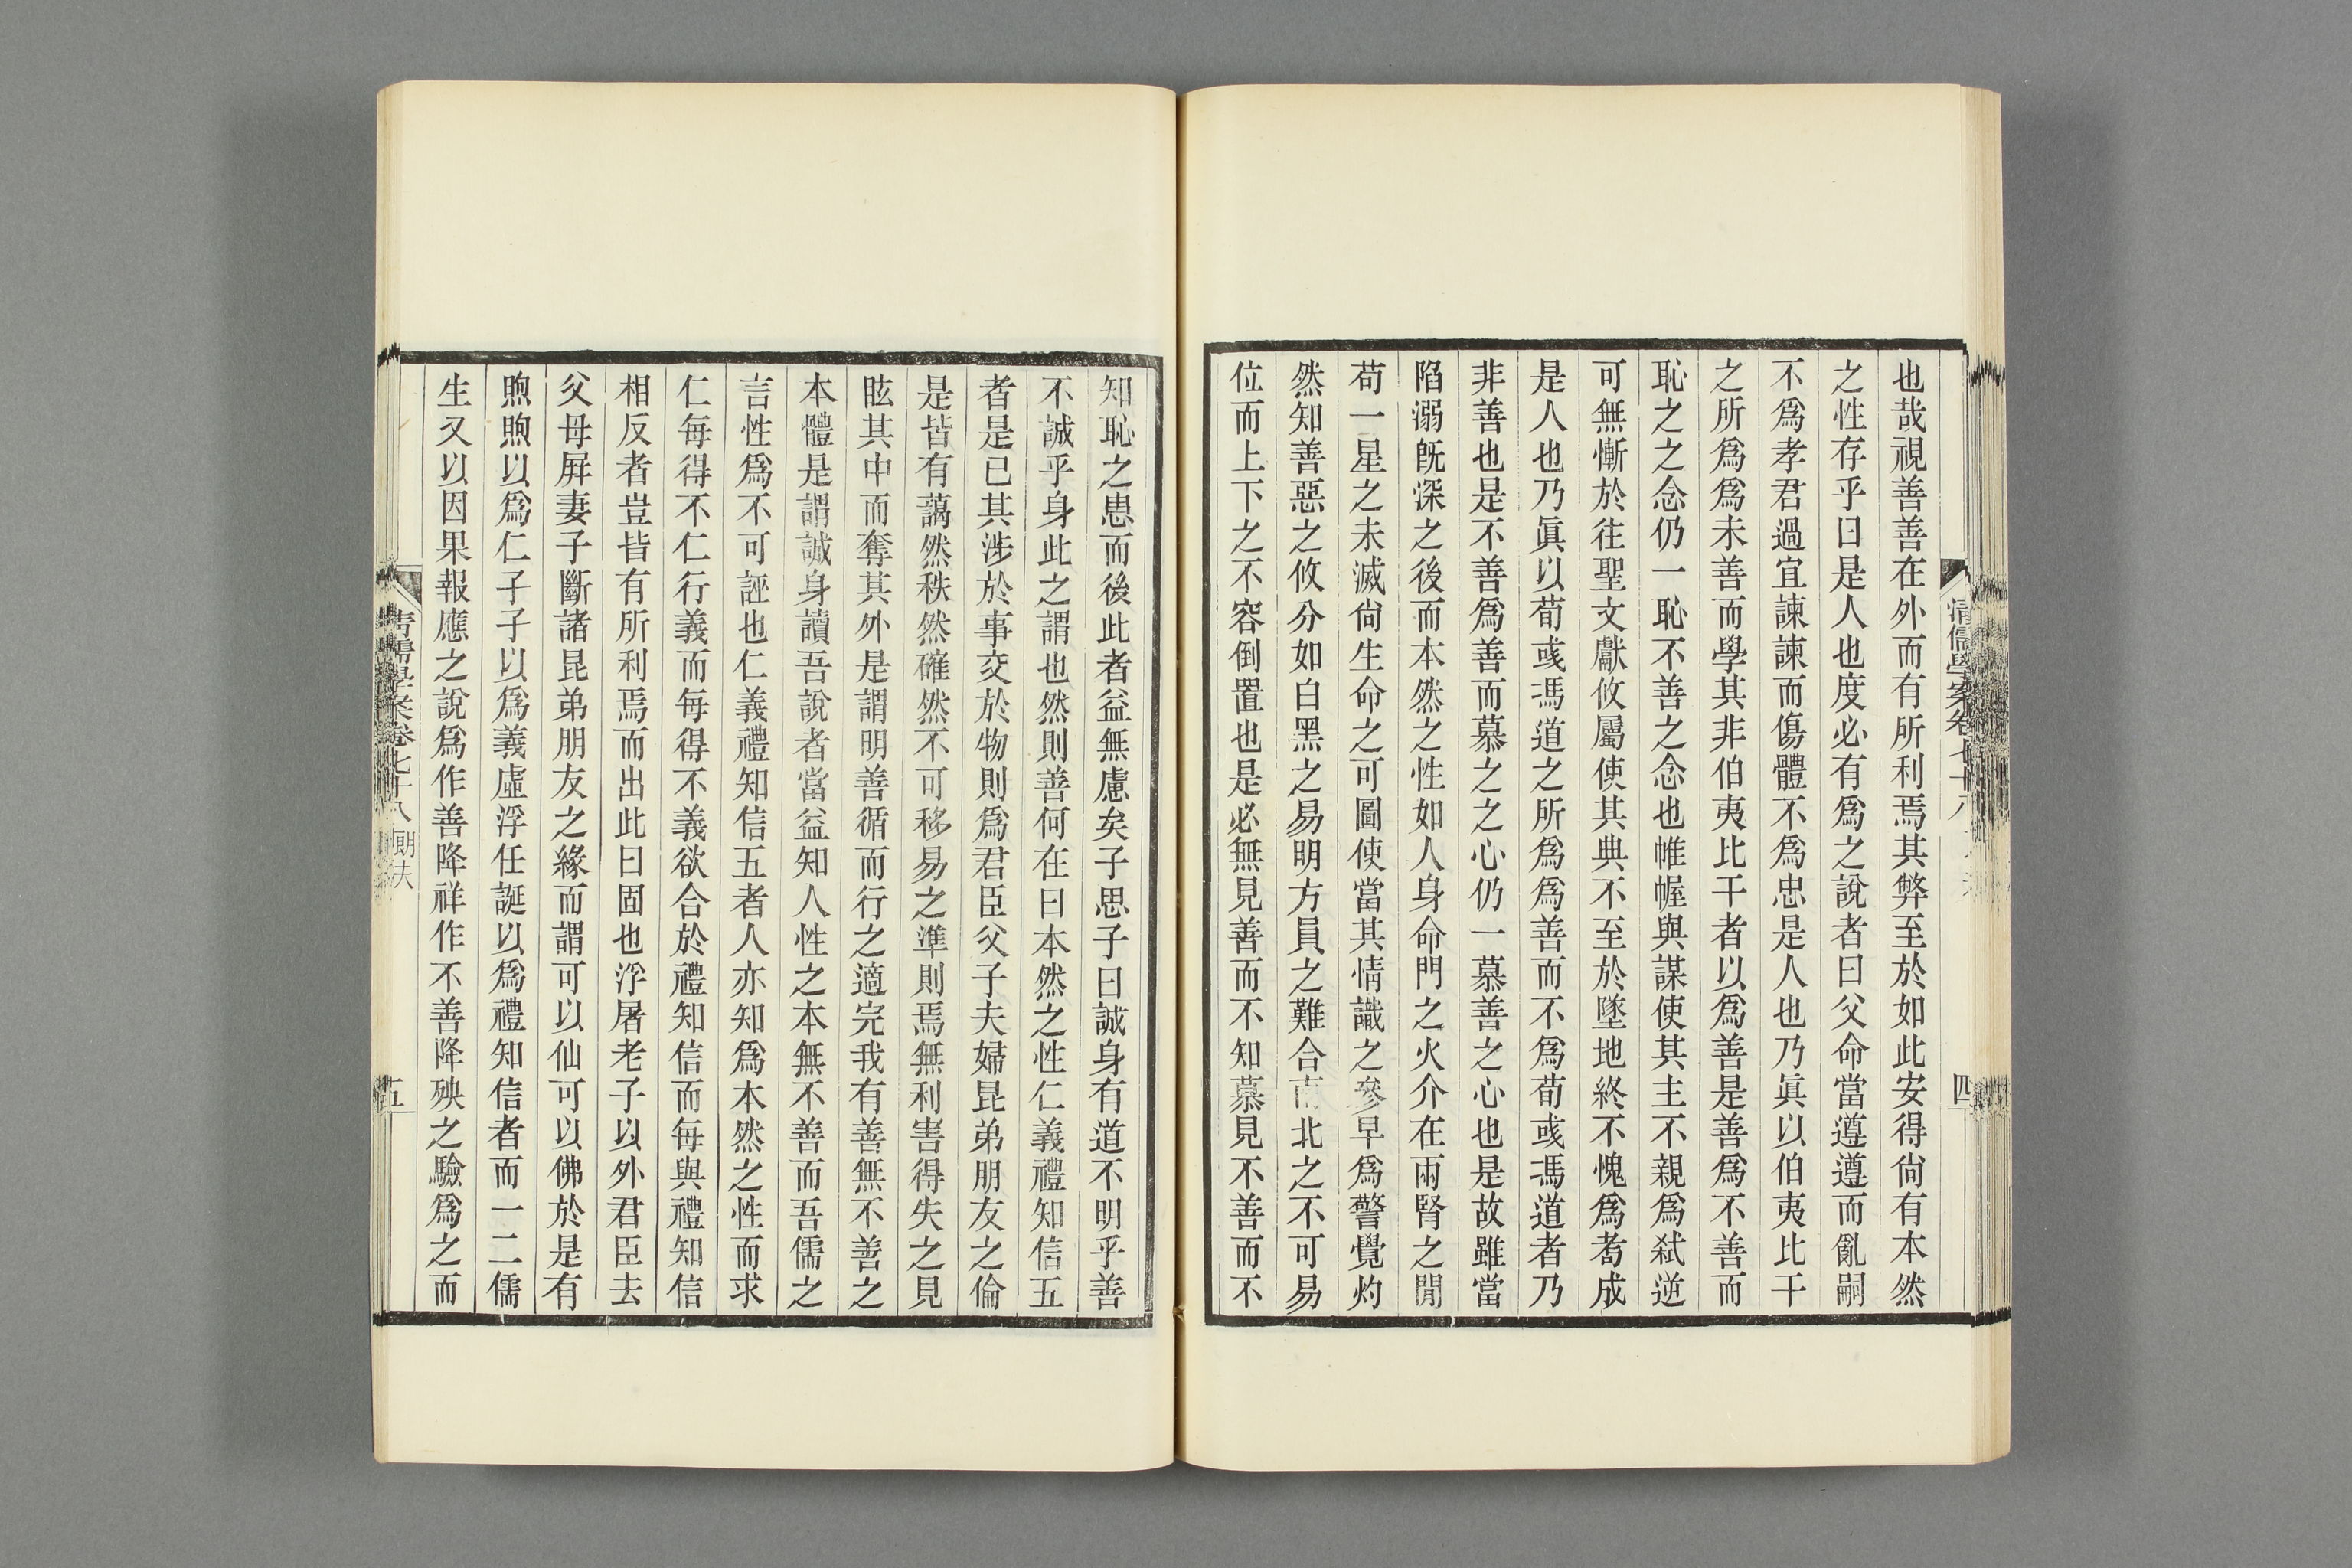 清儒學案卷七十八
四
也哉視善善在外而有所利焉其弊至於如此安得尙有本然
之性存乎曰是人也度必有爲之說者曰父命當遵遵而亂嗣
不爲孝君過宜諫諫而傷體不爲忠是人也乃眞以伯夷比干
之所爲爲未善而學其非伯夷比干者以爲善是善爲不善而
恥之之念仍一恥不善之念也帷幄與謀使其主不親爲弑逆
可無慚於往聖文獻攸屬使其典不至於墜地終不愧爲耉成
是人也乃眞以荀彧馮道之所爲爲善而不爲荀彧馮道者乃
非善也是不善爲善而慕之之心仍一慕善之心也是故雖當
陷溺旣深之後而本然之性如人身命門之火介在兩腎之閒
苟一星之未滅尙生命之可圖使當其情識之參早爲警覺灼
然知善惡之攸分如白黑之易明方員之難合南北之不可易
位而上下之不容倒置也是必無見善而不知慕見不善而不
知恥之患而後此者益無慮矣子思子曰誠身有道不明乎善
不誠乎身此之謂也然則善何在曰本然之性仁義禮知信五
者是已其涉於事交於物則爲君臣父子夫婦昆弟朋友之倫
是皆有藹然秩然確然不可移易之準則焉無利害得失之見
眩其中而奪其外是謂明善循而行之適完我有善無不善之
本體是謂誠身讀吾說者當益知人性之本無不善而吾儒之
言性爲不可誣也仁義禮知信五者人亦知爲本然之性而求
仁每得不仁行義而每得不義欲合於禮知信而每與禮知信
相反者豈皆有所利焉而出此曰固也浮屠老子以外君臣去
父母屛妻子斷諸昆弟朋友之緣而謂可以仙可以佛於是有
煦煦以爲仁孑孑以爲義虛浮任誕以爲禮知信者而一二儒
生又以因果報應之說爲作善降祥作不善降殃之驗爲之而
清儒學案卷七十八
五